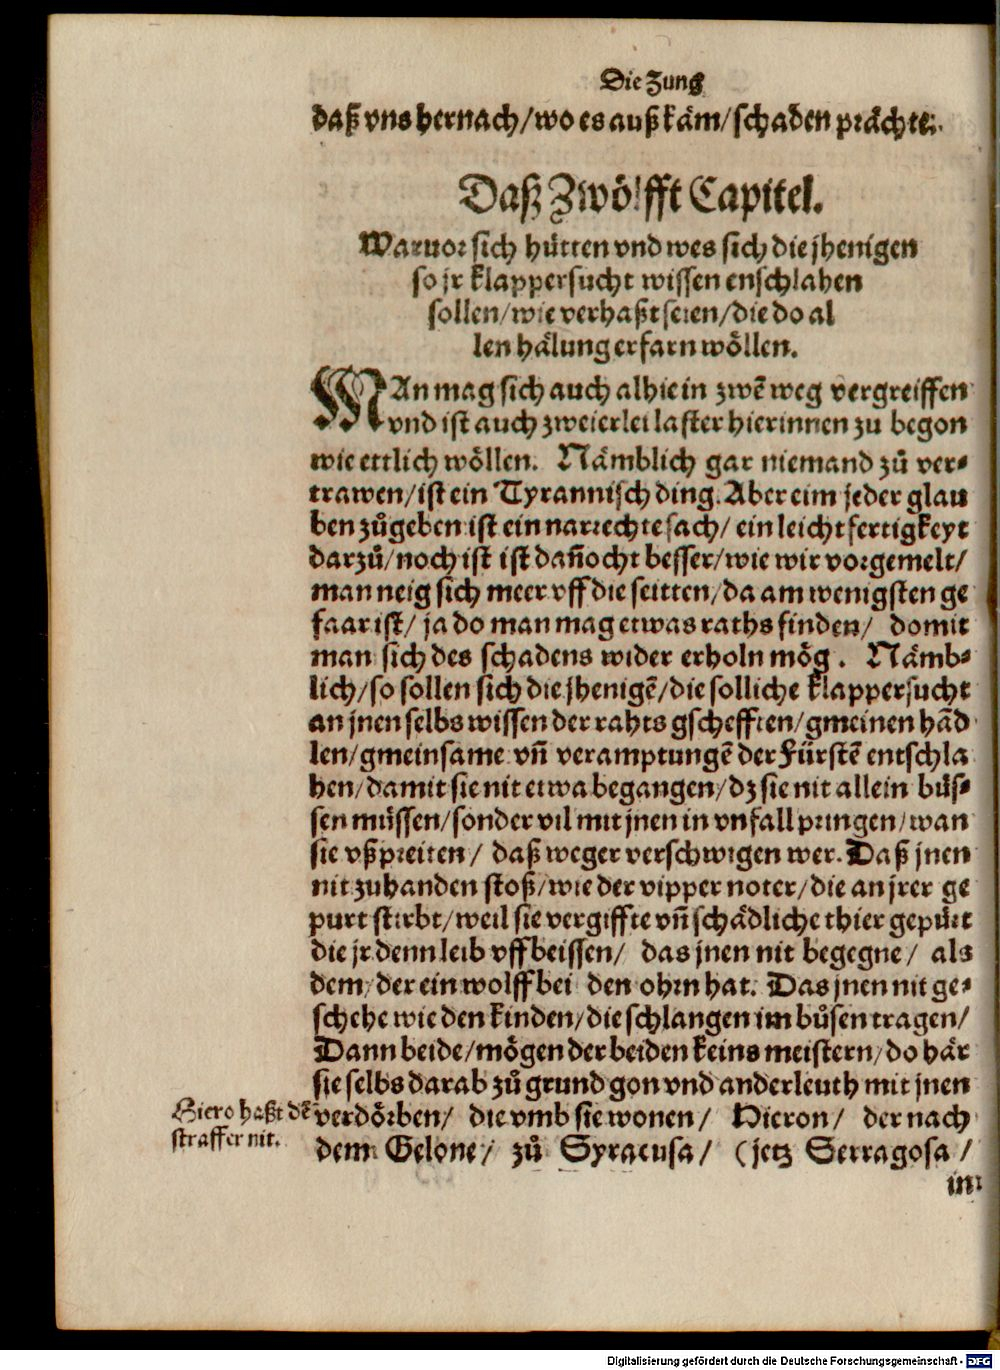 Die Zung
daß vns hernach/wo es außkäm/schaden prächte.
Daß Zwölfft Capitel.
Waruor sich hütten vnd wes sich die jhenigen
so jr klappersucht wissen enschlahen
sollen/wie verhaßt seien/die do al
len hälung erfarn wöllen.
MAn mag sich auch alhie in zwē weg vergreiffen
vnd ist auch zweierlei laster hierinnen zu begon
wie ettlich wöllen. Nämblich gar niemand zů ver-
trawen/ist ein Tyrannisch ding. Aber eim jeder glau
ben zůgeben ist ein narrechte sach/ ein leichtfertigkeyt
darzů/noch ist ist dañocht besser/wie wir vorgemelt/
man neig sich meer vff die seitten/da am wenigsten ge
faar ist/ ja do man mag etwas raths finden/ domit
man sich des schadens wider erholn mög. Nämb-
lich/so sollen sich die jhenigē/die solliche klappersucht
an jnen selbs wissen der rahts gschefften/gmeinen hād
len/gmeinsame vñ veramptungē der Fürstē entschla
hen/damit sie nit etwa begangen/dz sie nit allein büs-
sen müssen/sonder vil mit jnen in vnfall pringen/wan
sie vßpreiten/ daß weger verschwigen wer. Daß jnen
nit zuhanden stoß/wie der vipper noter/die an jrer ge
purt stirbt/weil sie vergiffte vñ schädliche thier gepürt
die jr denn leib vffbeissen/ das jnen nit begegne/ als
dem/der ein wolff bei den ohrn hat. Das jnen nit ge-
schehe wie den kinden/die schlangen im bůsen tragen/
Dann beide/mögen der beiden keins meistern/do här
sie selbs darab zů grund gon vnd ander leuth mit jnen
verdörben/ die vmb sie wonen/ Hieron/ der nach
dem Gelone/ zů Syracusa/ (jetz Serragosa/
Hiero haßt dē
straffer nit.
in
Digitalisierung gefördert durch die Deutsche Forschungsgemeinschaft - DFG